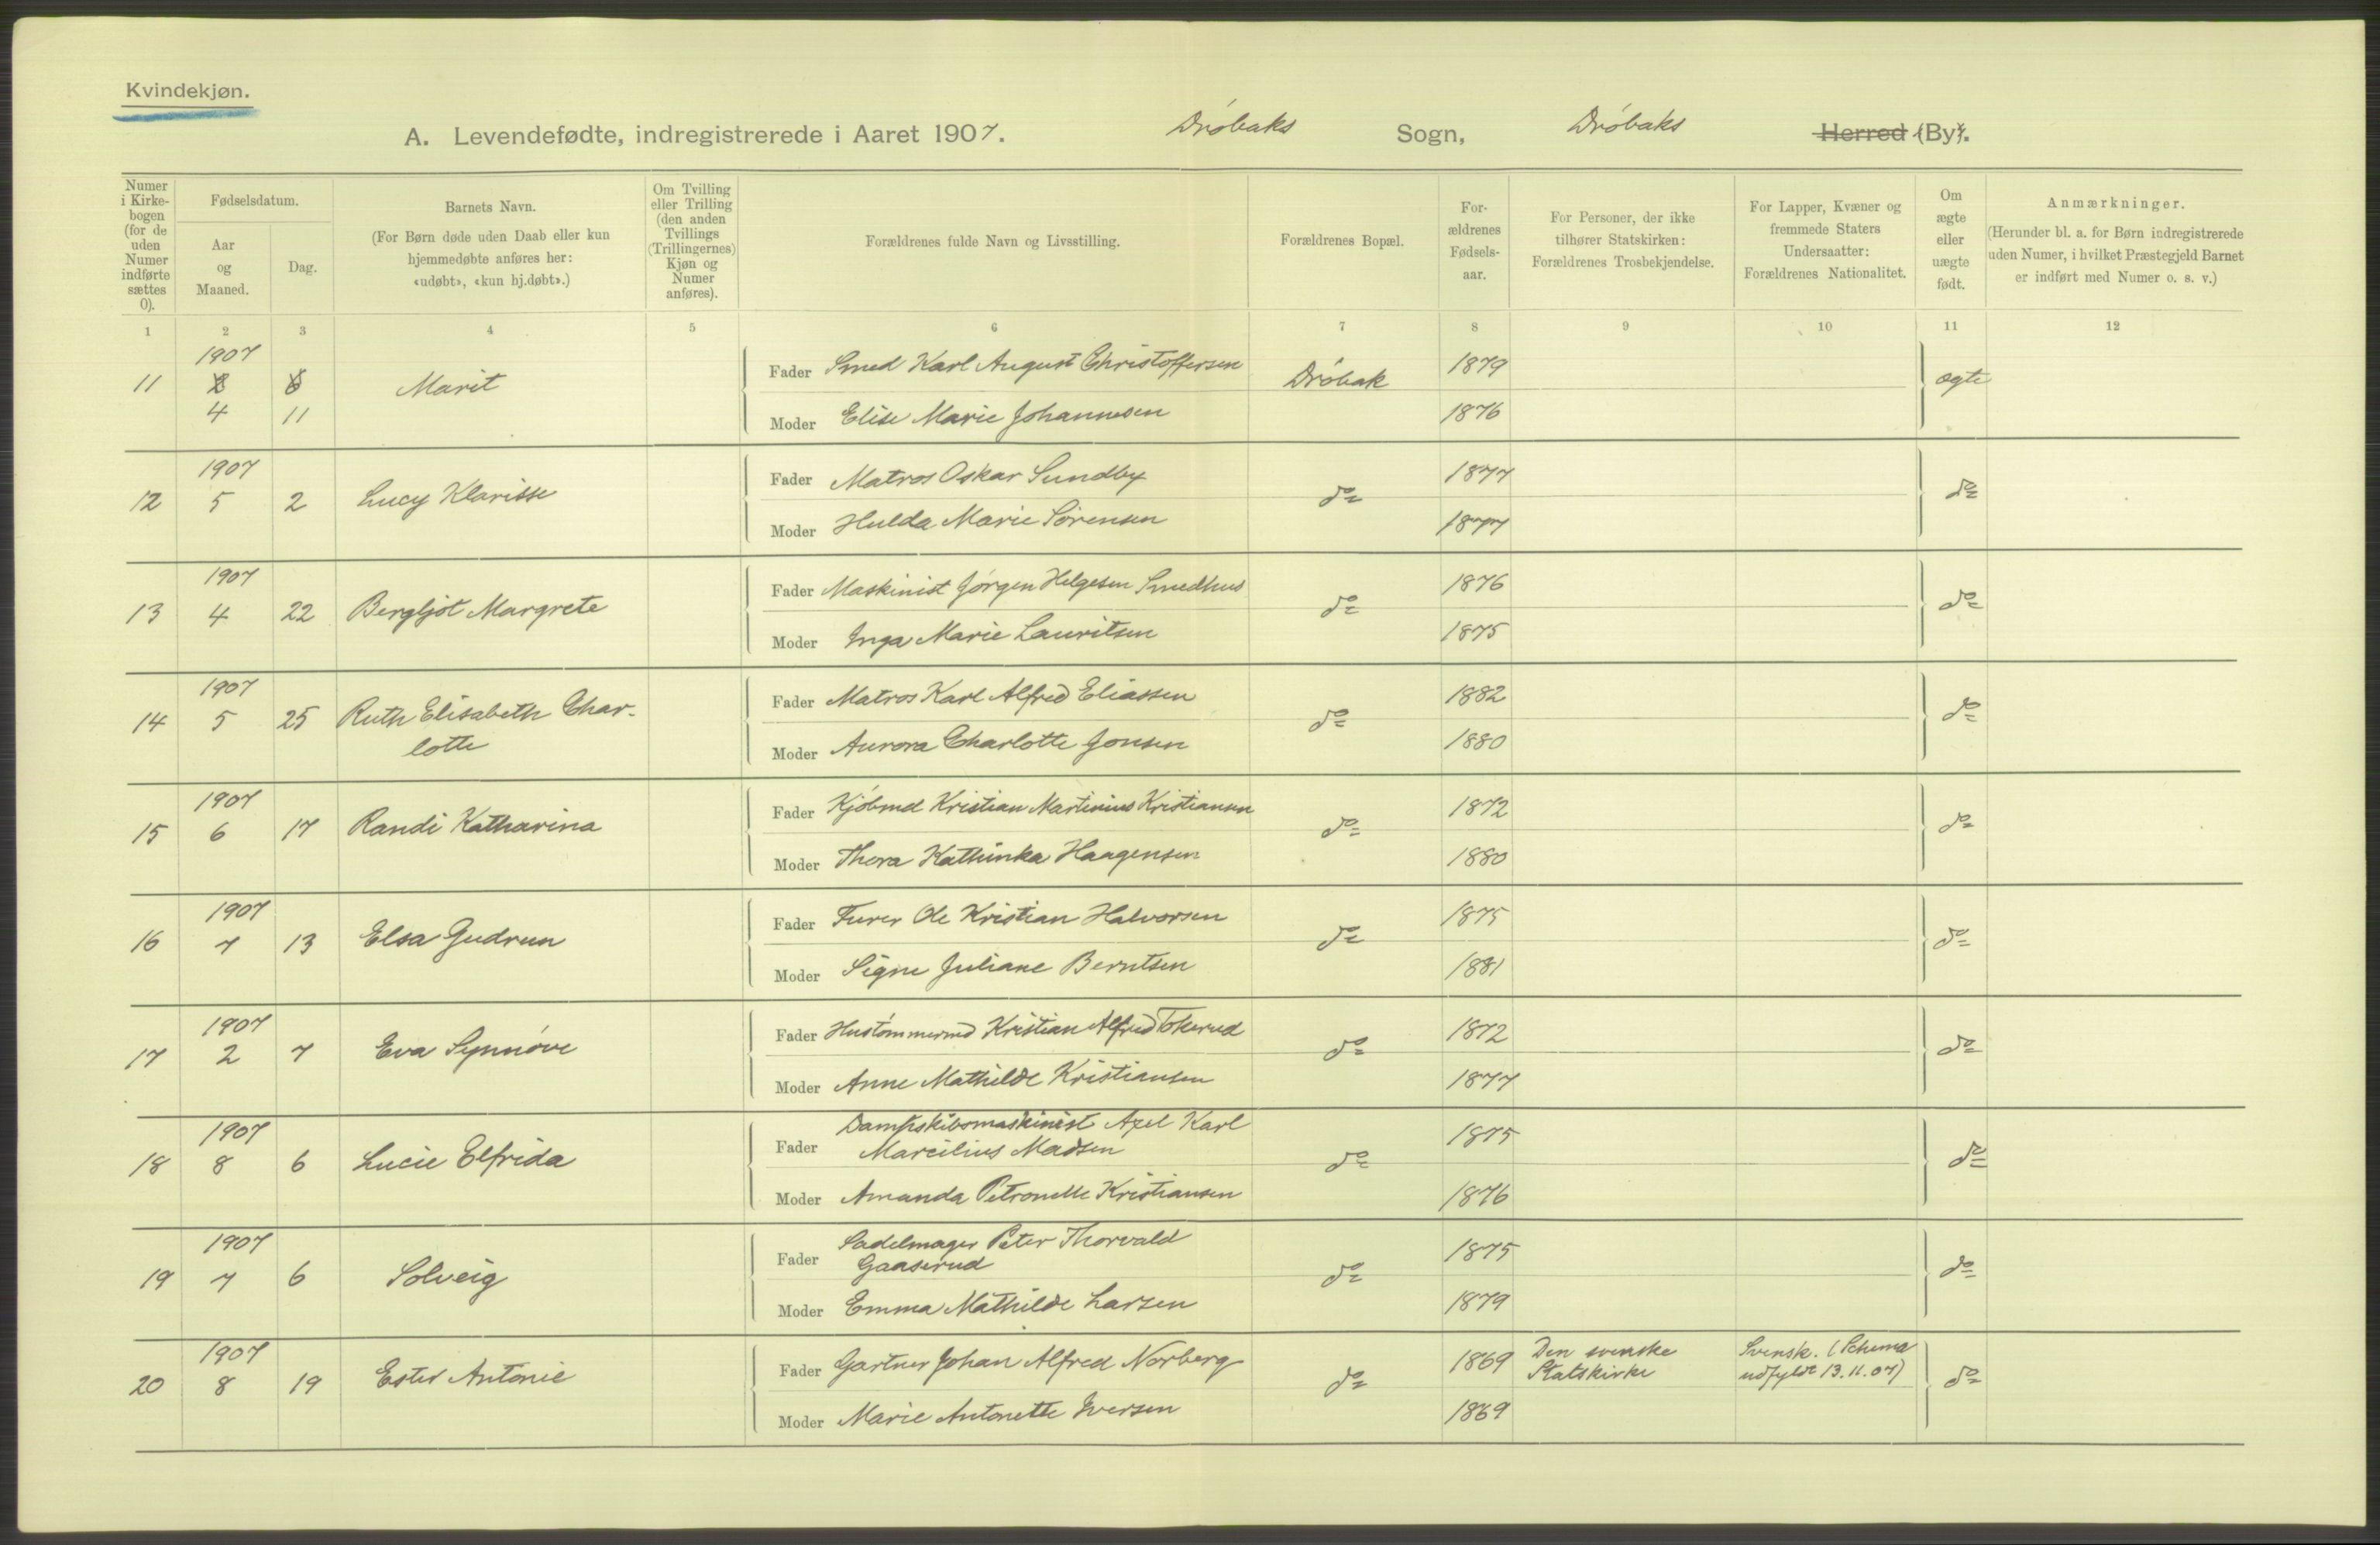 Kvindekjøn.
A. Levendefødte, indregistrerede i Aaret 1907. Drøbaks Sogn, Drøbaks Herred (By).
Numer i Kirkebogen (for de uden Numer indførte sættes 0).
Fødselsdatum.
Aar og Maaned.
Dag.
Barnets Navn.
(For Børn døde uden Daab eller kun
hjemmedøbte anføres her:
«udøbt», «kun hj.døbt».)
Om Tvilling
eller Trilling
(den anden
Tvillings
(Trillingernes)
Kjøn og
Numer
anføres).
Forældrenes fulde Navn og Livsstilling.
Forældrenes Bopæl.
For-
ældrenes
Fødsels-
aar.
For Personer, der ikke
tilhører Statskirken:
Forældrenes Trosbekjendelse.
For Lapper, Kvæner og
fremmede Staters
Undersaatter:
Forældrenes Nationalitet.
Om
ægte
eller
uægte
født.
Anmærkninger.
(Herunder bl. a. for Børn indregistrerede
uden Numer, i hvilket Præstegjeld Barnet
er indført med Numer o. s. v.)
1 2 3 4 5 6 7 8 9 10 11 12
1907
11 4 11 Marit
Fader Smed Karl August Christoffersen Drøbak 1879 ægte
Moder Elise Marie Johannesen 1876
1907
12 5 2 Lucy Klarisse
Fader Matros Oskar Sundby do 1877 do
Moder Hulda Marie Sørensen 1877
1907
13 4 22 Bergljot Margrete
Fader Maskinist Jørgen Helgesen Smedhus do 1876 do
Moder Inga Marie Lauritsen 1875
1907
14 5 25 Ruth Elisabeth Char-
lotte
Fader Matros Karl Alfred Eliassen do 1882 do
Moder Aurora Charlotte Jonsen 1880
1907
15 6 17 Randi Katharina
Fader Kjøbmd Kristian Martinius Kristiansen do 1872 do
Moder Thora Kathinka Haagensen 1880
1907
16 7 13 Elsa Gudrun
Fader Furer Ole Kristian Halvorsen do 1875 do
Moder Signe Juliane Berntsen 1881
1907
17 2 7 Eva Synnøve
Fader Hustømmermd Kristian Alfred Tokerud do 1872 do
Moder Anne Mathilde Kristiansen 1877
1907
18 8 6 Lucie Elfrida
Fader Dampskibsmaskinist Axel Karl
Marcilius Madsen do 1875 do
Moder Amanda Petronelle Kristiansen 1876
1907
19 7 6 Solveig
Fader Sadelmager Peter Thorvald
Gaaserud do 1875 do
Moder Emma Mathilde Larsen 1879
1907
20 8 19 Ester Antonie
Fader Gartner Johan Alfred Norberg do 1869 Den svenske
Statskirke Svensk. (Schema
udfyldt 13.11.07) do
Moder Marie Antonette Iversen 1869